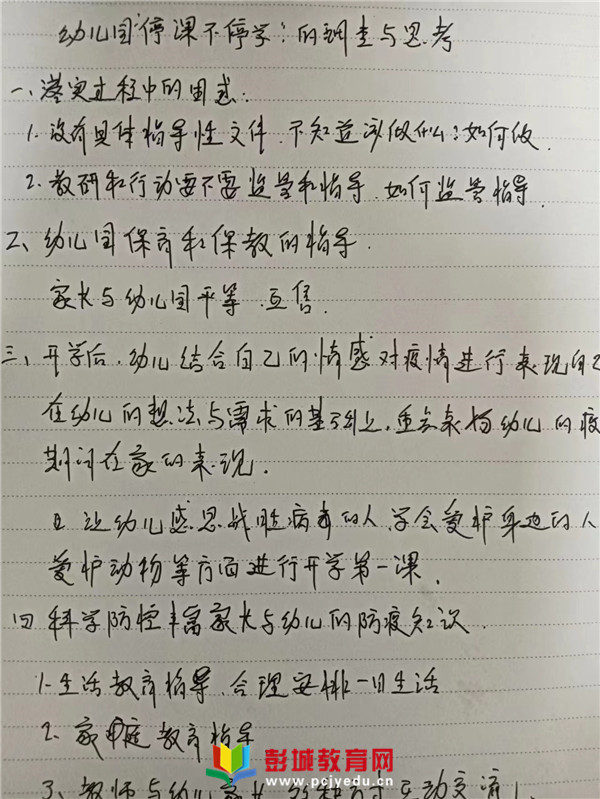 幼儿园"停课不停学"的调查与思考
一、落实过程中的困惑:
1. 没有具体指导性文件.不知道该做什么?如何做.
2. 教研和行动要不要监督和指导.如何监督指导.
二、幼儿园保育和保教的指导.
家长与幼儿园平等.互信.
三、开学后.幼儿结合自己的情感对疫情进行表现自己
在幼儿的想法与需求的基础上.重去表扬幼儿的疫
期间在家的表现.
让幼儿感恩战胜病毒的人.学会爱护身边的人
爱护动物等方面进行开学第一课.
四 科学防控丰富家长与幼儿的防疫知识.
1.生活教育指导.合理安排一日生活
2. 家庭教育指导
3、教师与幼儿家长 互动交流
彭城教育网
www.pcjyedu.cn